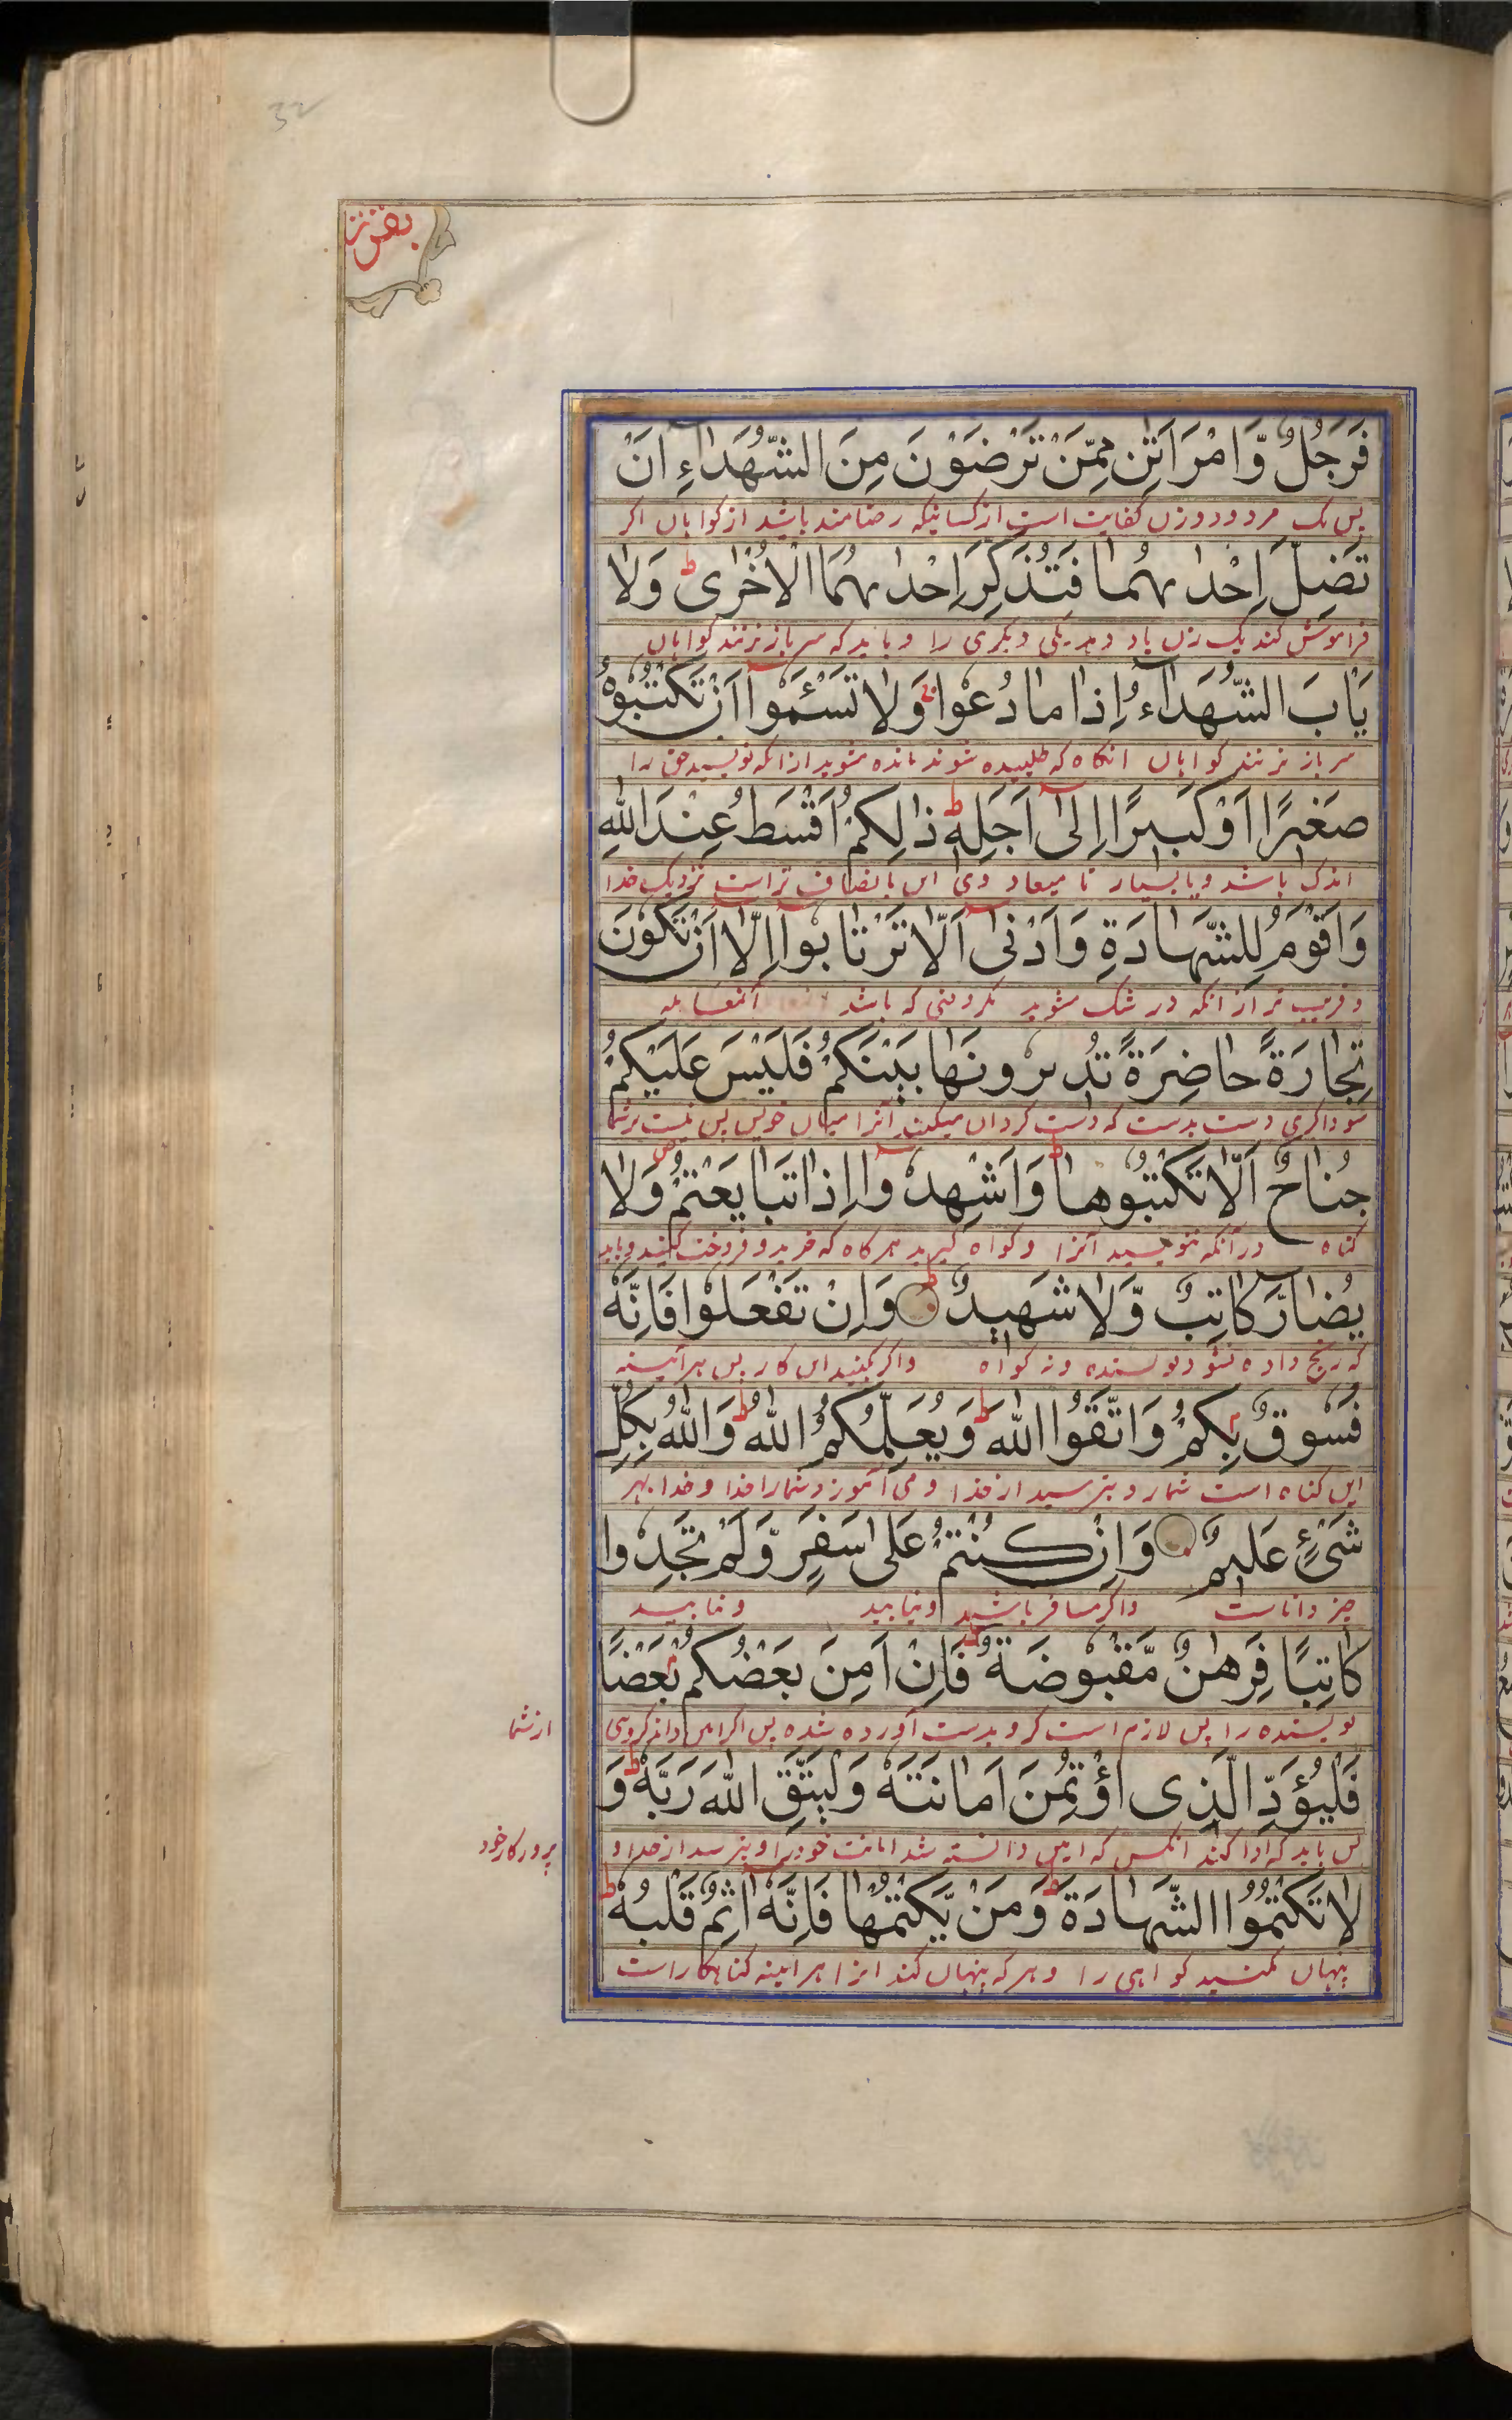 32
بقره
فَرَجُلٌ وَّامْرَاَتٰنِ مِمَّنْ تَرْضَوْنَ مِنَ الشُّهَدَآءِ اَنْ
پس یک مرد و دو زن کفایت است از کسانیکه رضامند باشید از کواہان اکر
تَضِلَّ اِحْدٰىهُمَا فَتُذَكِّرَ اِحْدٰىهُمَا الْاُخْرٰى ؕ وَلَا
فراموش کند یک زن یاد دهد یکی دیکری را و باید که سر باز نزنند کواہان
يَاْبَ الشُّهَدَآءُ اِذَا مَا دُعُوْا وَلَا تَسْـَٔمُوْٓا اَنْ تَكْتُبُوْهُ
سر باز نزنند کواہان انکاه که طلبیده شوند مانده مشوید از انکه نویسید حق را
صَغِيْرًا اَوْ كَبِيْرًا اِلٰٓى اَجَلِهٖ ؕ ذٰلِكُمْ اَقْسَطُ عِنْدَ اللّٰهِ
اندک باشد و یا بسیار تا میعاد وی این بانصاف تر است نزدیک خدا
وَاَقْوَمُ لِلشَّهَادَةِ وَاَدْنٰٓى اَلَّا تَرْتَابُوْٓا اِلَّآ اَنْ تَكُوْنَ
و قریب تر از انکه در شک مشوید مکر وقتی که باشد انمعامله
تِجَارَةً حَاضِرَةً تُدِيْرُوْنَهَا بَيْنَكُمْ فَلَيْسَ عَلَيْكُمْ
سوداکری دست بدست که دست کردان میکنید آنرا میان خویش پس نیست بر شما
جُنَاحٌ اَلَّا تَكْتُبُوْهَا ؕ وَاَشْهِدُوْٓا اِذَا تَبَايَعْتُمْ ص وَلَا
کناه در آنکه ننویسید آنرا و کواه کیرید هر کاه که خرید و فروخت کنید و باید
يُضَآرَّ كَاتِبٌ وَّلَا شَهِيْدٌ ؕ وَاِنْ تَفْعَلُوْا فَاِنَّهٗ
که رنج داده نشود نویسنده و نه کواه واکر بکنید این کار پس هر آئینه
فُسُوْقٌ بِكُمْ وَاتَّقُوا اللّٰهَ ؕ وَيُعَلِّمُكُمُ اللّٰهُ ؕ وَاللّٰهُ بِكُلِّ
این کناه است شمارا و بترسید از خدا و می آموزد شمارا خدا و خدا بهر
شَيْءٍ عَلِيْمٌ وَاِنْ كُنْتُمْ عَلٰى سَفَرٍ وَّلَمْ تَجِدُوْا
چیز داناست واکر مسافر باشید و نیابید و نیابید
كَاتِبًا فَرِهٰنٌ مَّقْبُوْضَةٌ ؕ فَاِنْ اَمِنَ بَعْضُكُمْ بَعْضًا
نویسنده را پس لازم است کرو بدست آورده شده پس اکر امین داند کروهی
از شما
فَلْيُؤَدِّ الَّذِى اؤْتُمِنَ اَمَانَتَهٗ وَلْيَتَّقِ اللّٰهَ رَبَّهٗ ؕ وَ
پس باید که ادا کند انکس که امین دانسته شد امانت خود را و بترسد از خدا و
پرورکار خود
لَا تَكْتُمُوا الشَّهَادَةَ ؕ وَمَنْ يَّكْتُمْهَا فَاِنَّهٗٓ اٰثِمٌ قَلْبُهٗ ؕ
پنهان مکنید کواہی را و هر که پنهان کند انرا هر آئینه کناهکار است